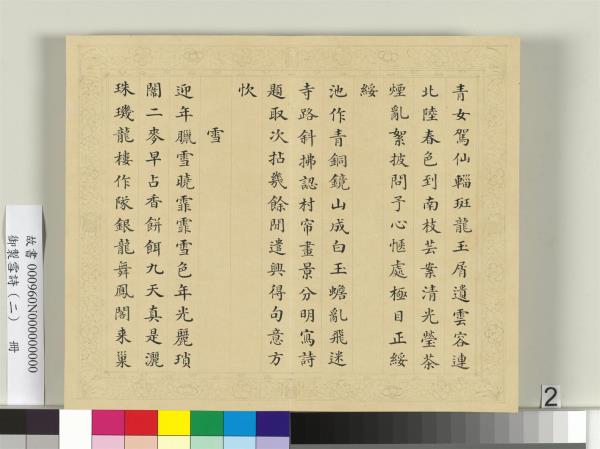 青女駕仙輜斑龍玉屑遺雲容連
北陸春色到南枝芸案清光瑩茶
煙亂絮披問予心愜處極目正綏
綏
池作青銅鏡山成白玉蟾亂飛迷
寺路斜拂認村帘畫景分明寫詩
題取次拈幾餘閒遣興得句意方
忺
雪
迎年臘雪曉霏霏雪色年光麗瑣
闈二麥早占香餅餌九天真是灑
珠璣龍樓作隊銀龍舞鳳閣來巢
故書000960N000000000
御製雪詩(二) 冊
2